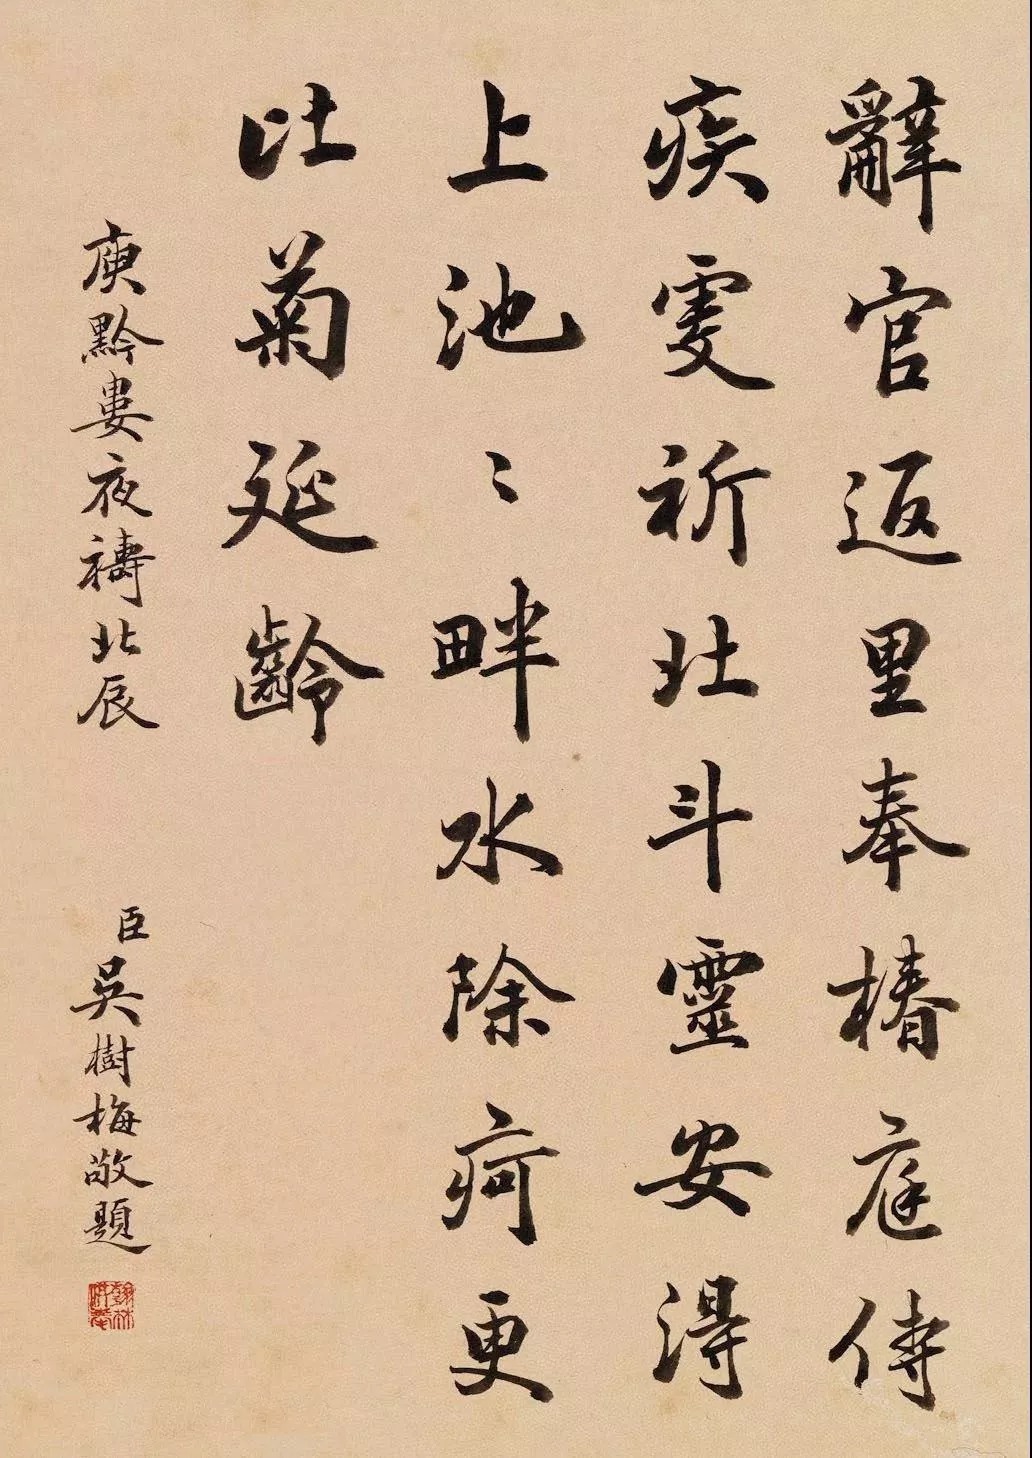 辭官返里奉椿庭侍
疾虔祈北斗靈安得
上池〻畔水除疴更
比菊延齡
庾黔婁夜禱北辰
臣吳樹梅敬題